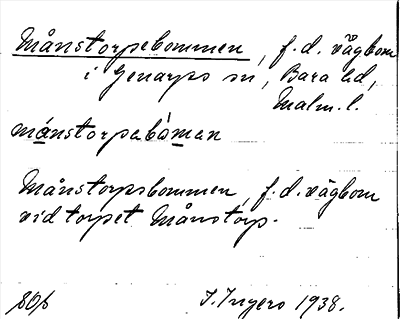 Månstorpsbommen, f.d. vägbom
i Genarps sn, Bara hd,
Malm.l.
månstorpabåman
Månstorpsbommen, f.d. vägbom
vid torpet Månstorp.
I. Ingers 1938.